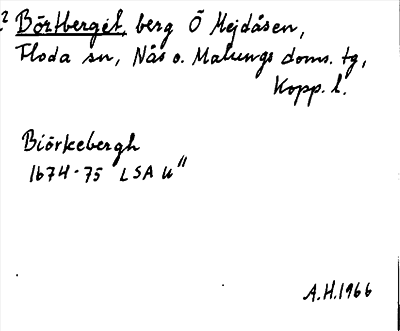 ? Börtberget, berg Ö Hejdåsen,
Floda sn, Nås o. Malungs doms. tg,
Kopp. l.
Biörkebergh
1674-75 LSA U"
A.H. 1966